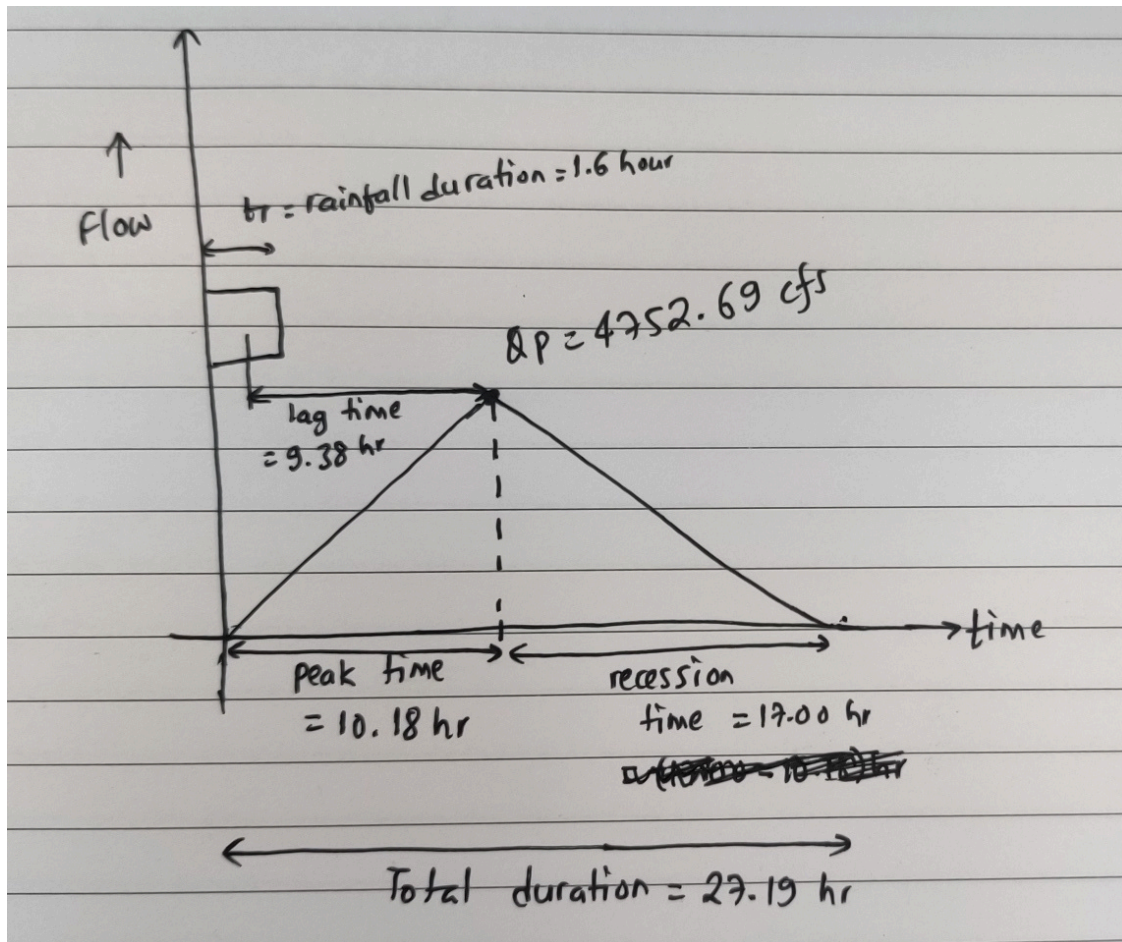 Flow
tr = rainfall duration = 1.6 hour
QP = 4752.69 cfs
lag time
= 9.38 hr
time
peak time
= 10.18 hr
recession
time = 17.00 hr
Total duration = 27.19 hr